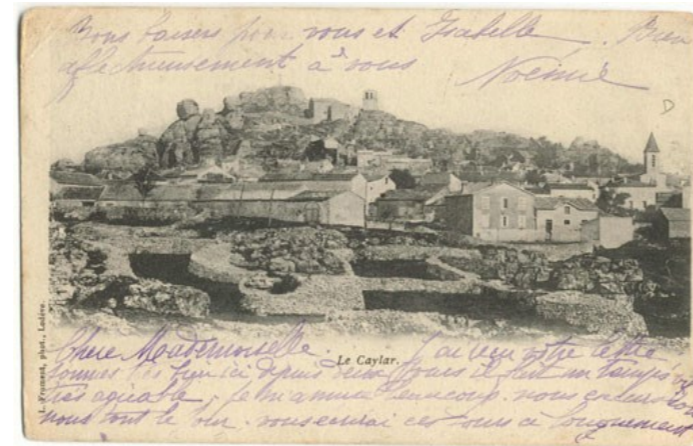 Bons baisers pour vous et Isabelle. Bien
affectueusement à vous Noémie
D
Le Caylar.
L. Froment, phot., Lodève.
Chère Mademoiselle. J'ai reçu votre lettre
sommes ici depuis deux jours il fait un temps
très agréable, je m'amuse beaucoup. nous
nous tout le jour. vous ces jours ci longuement